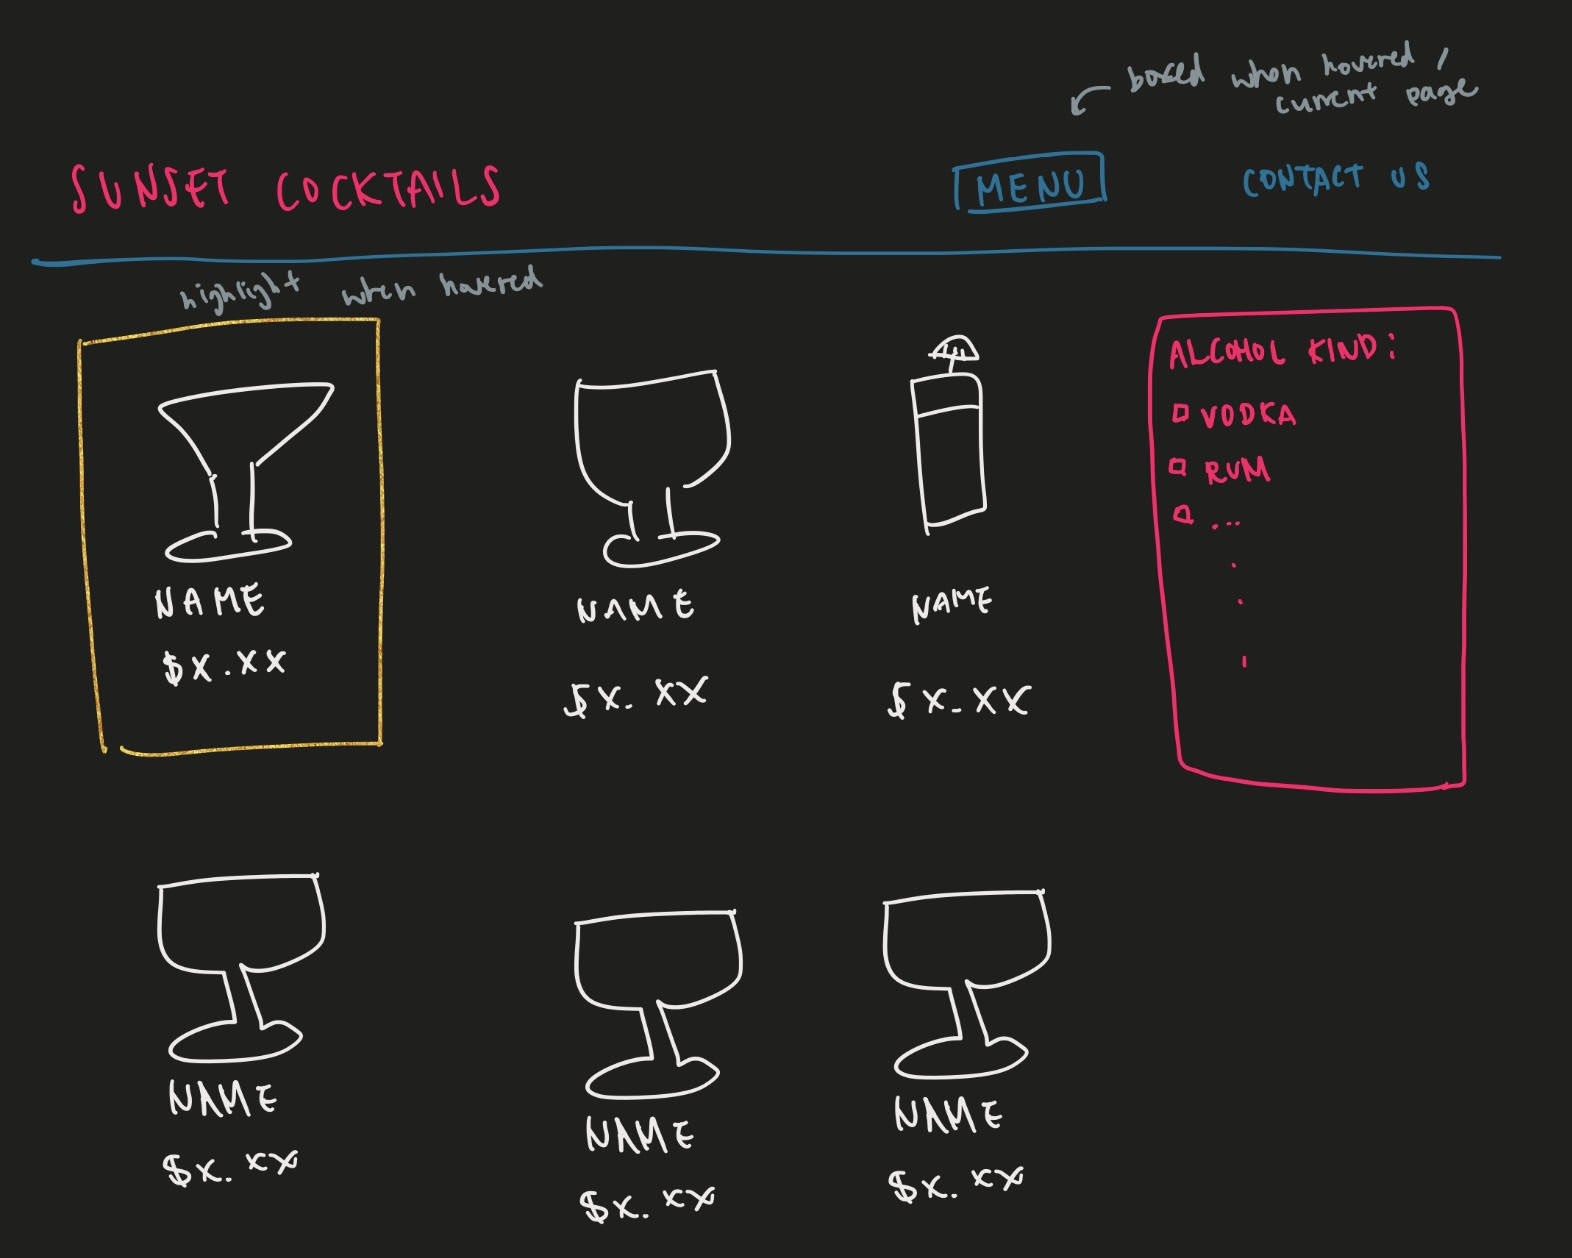 boxed when hovered /
current page
SUNSET COCKTAILS
MENU
CONTACT US
highlight when hovered
NAME
$X.XX
NAME
$X.XX
NAME
$X.XX
ALCOHOL KIND:
VODKA
RUM
...
NAME
$X.XX
NAME
$X.XX
NAME
$X.XX